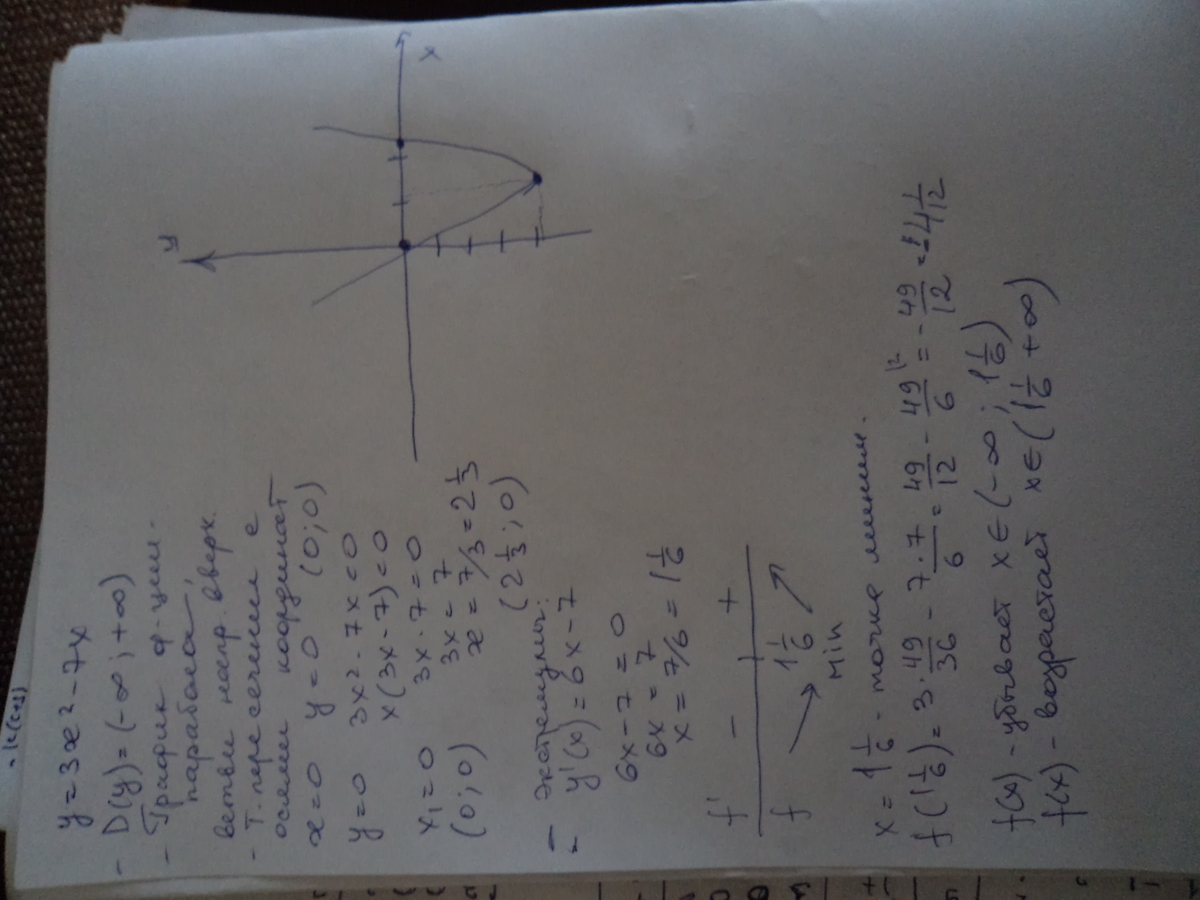 y = 3x² - 7x
- D(y) = (-∞; +∞)
- График ф-ции -
парабола,
ветви напр. вверх.
- Т. пересечения с
осями координат
x = 0 y = 0 (0; 0)
y = 0 3x² - 7x = 0
x(3x - 7) = 0
x₁ = 0 3x - 7 = 0
(0; 0) 3x = 7
x = 7/3 = 2 1/3
(2 1/3; 0)
- экстремумы:
y'(x) = 6x - 7
6x - 7 = 0
6x = 7
x = 7/6 = 1 1/6
f' - +
f → 1 1/6 ↗
min
x = 1 1/6 - точка миним.
f(1 1/6) = 3 · 49/36 - 7·7/6 = 49/12 - 49/6 = -49/12 = -4 1/12
f(x) - убывает x ∈ (-∞; 1 1/6)
f(x) - возрастает x ∈ (1 1/6 +∞)
y
x